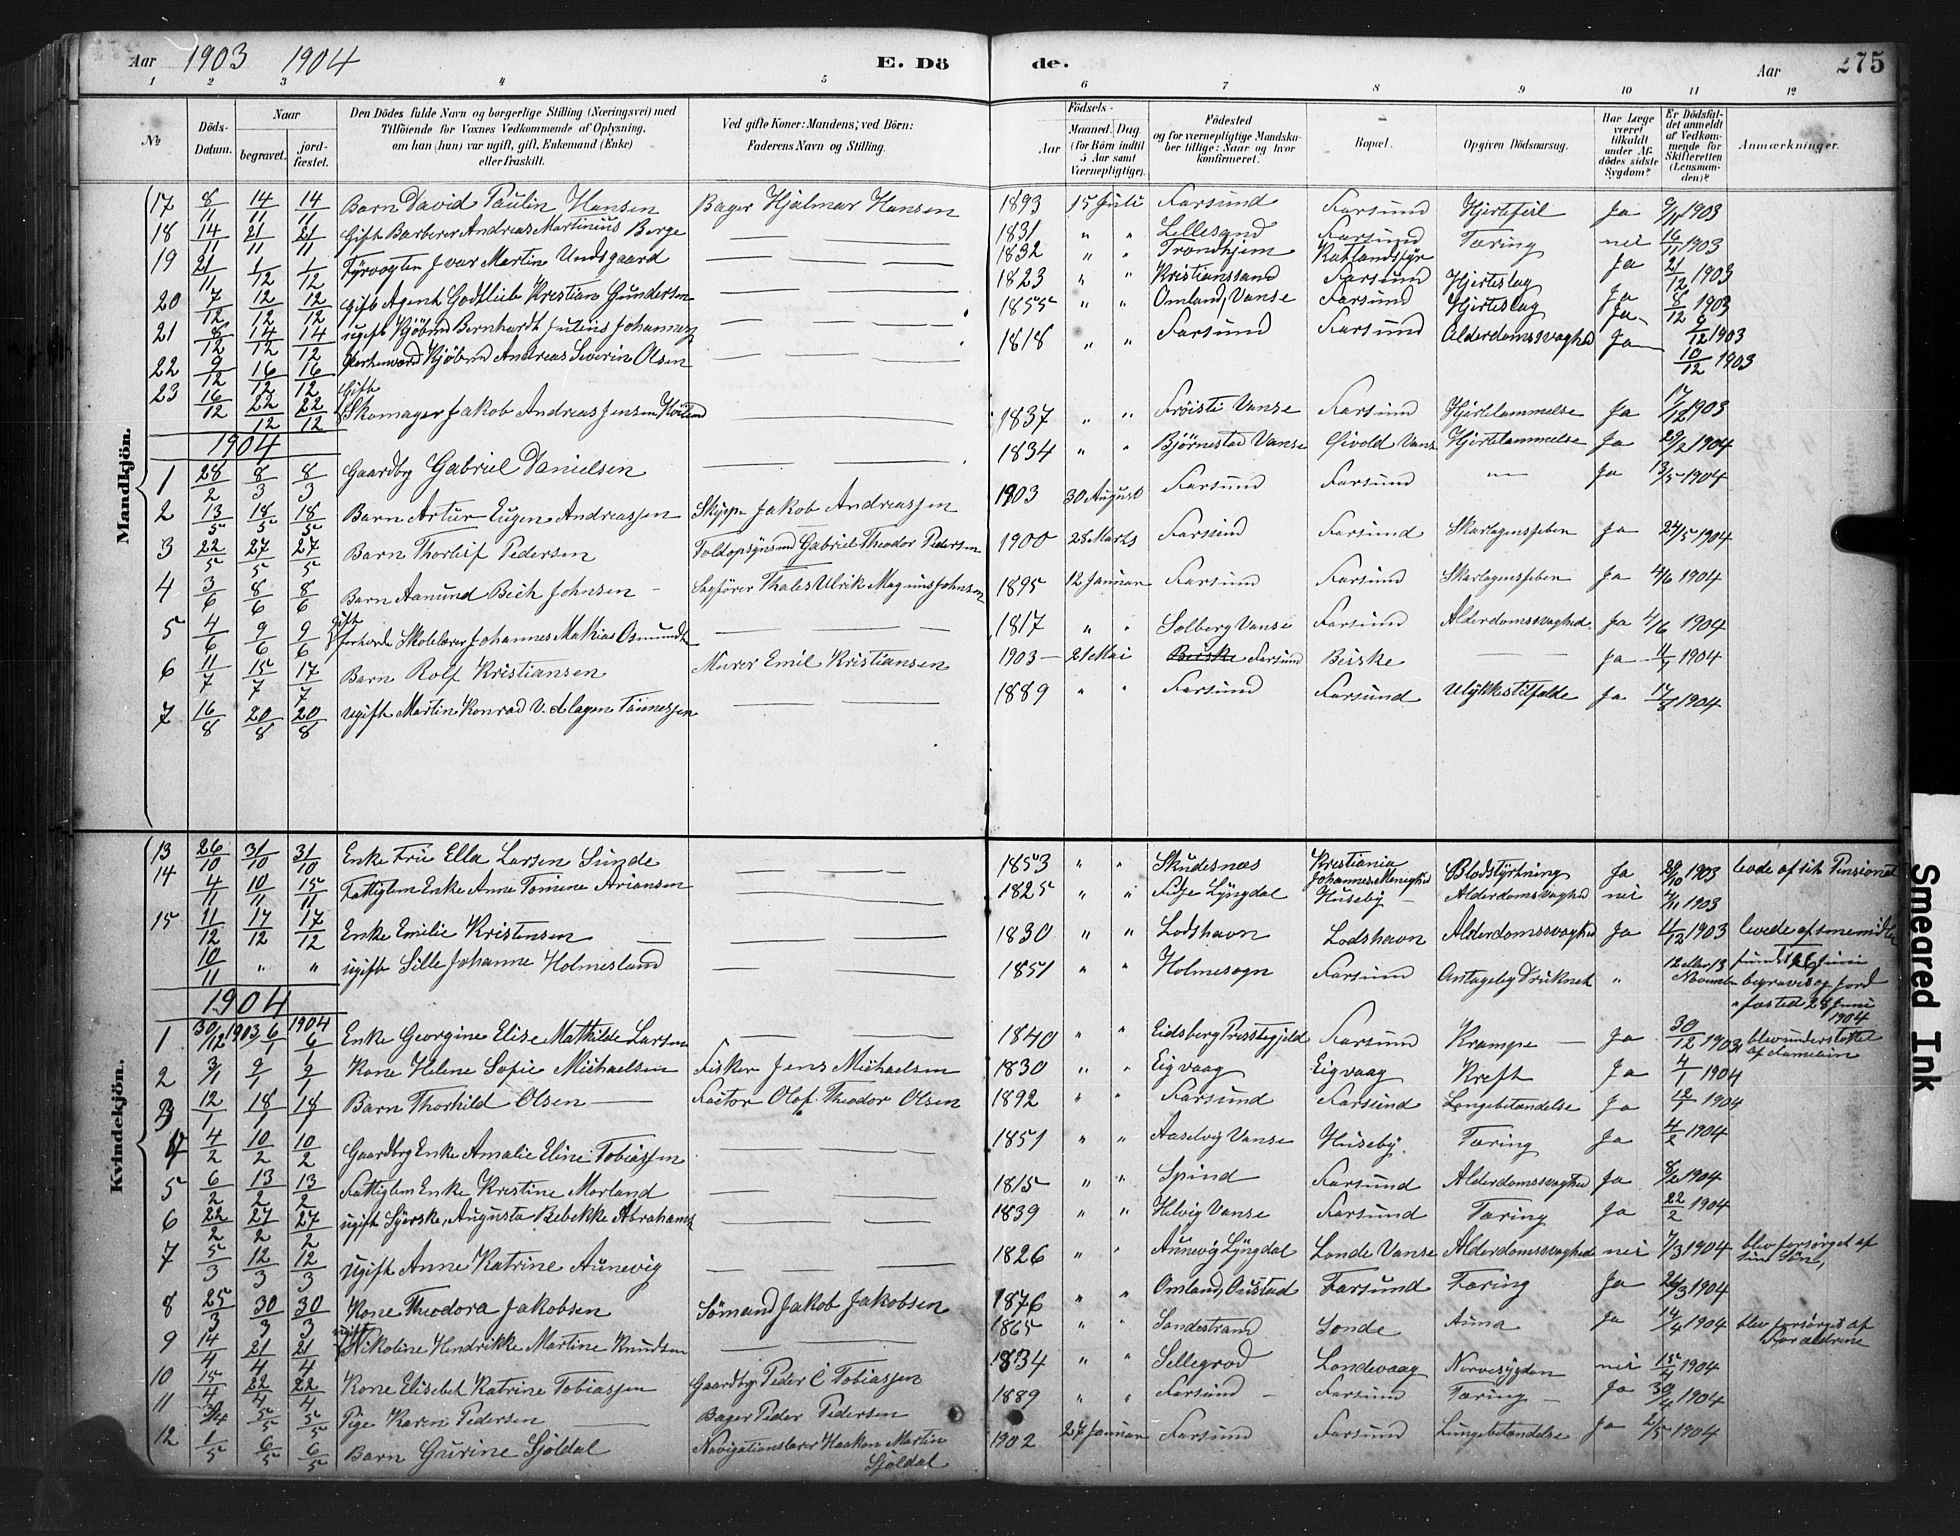 Aar 1903 1904 E. Dö de. Aar 275
1 2 3 4 5 6 7 8 9 10 11 12
№ Döds-Datum. Naar begravet. jord-fæstet. Den Dödes fulde Navn og borgerlige Stilling (Næringsvei) med Tilföiende for Voxnes Vedkommende af Oplysning, om han (hun) var ugift, gift, Enkemand (Enke) eller fraskilt. Ved gifte Koner: Mandens; ved Börn: Faderens Navn og Stilling. Födsels- Aar Maaned. Dag. (for Börn indtil 5 Aar samt Værnepligtige). Födested og for værnepligtige Mandsku-ber tillige: Naar og hvor konfirmeret. Bopæl. Opgiven Dödsaarsag. Har Læge været tilkaldt under Af-dödes sidste Sygdom? Er Dödsfal-det anmeldt af Vedkom-mende for Skifteretten (Lensman-den)? Anmærkninger.
Mandkjön.
17 8/11 14/11 14/11 Barn David Paulin Hansen Bager Hjalmar Hansen 1893 15 Juli Farsund Farsund Hjertefeil Ja 9/11 1903
18 14/11 21/11 21/11 Gift Barberer Andreas Martinius Berge — — 1831 " " Lillesand Farsund Tæring nei 16/11 1903
19 21/11 1/12 1/12 Fyrvogten Ivar Martin Undsgaard — — 1832 " " Trondhjem Katlandsfyr Ja 21/12 1903
20 7/12 12/12 12/12 gift Agent Godtlieb Kristian Gundersen — — 1823 " " Kristianssand Farsund Hjerteslag Ja 8/12 1903
21 8/12 14/12 14/12 ugift Kjøbmd Bernhardt Julius Johannesen — — 1855 " " Omland, Vanse Farsund Hjerteslag Ja 1903
22 9/12 16/12 16/12 Kjøbmd Andreas Severin Olsen — — 1818 " " Farsund Farsund Alderdomssvaghed Ja 10/12 1903
23 16/12 22/12 22/12 Gift Skomager Jakob Andreas Jensen — — 1837 " " Frøisti Vanse Farsund Hjertelammelse Ja 17/12 1903
1904
1 28/2 8/3 8/3 Gaardbr Gabriel Danielsen — — 1834 " " Bjørnestad Vanse Vanse Hjertelammelse Ja 29/2 1904
2 13/5 18/5 18/5 Barn Artur Eugen Andreassen Jakob Andreassen 1903 30 August Farsund Farsund — Ja 13/5 1904
3 22/5 27/5 27/5 Barn Thorleif Pedersen Toldopsynsmd Gabriel Theodor Pedersen 1900 28 Marts Farsund Farsund Skarlagensfeber Ja 24/5 1904
4 3/6 8/6 8/6 Barn Aamund Bech Johnsen Sagfører Thales Ulrik Magnus Johnsen 1895 12 Januar Farsund Farsund Skarlagensfeber Ja 4/6 1904
5 4/6 9/6 9/6 gift forhv. Skolelærer Johannes Mathias Osmundsen — — 1817 " " Solberg Vanse Farsund Alderdomssvaghed. Ja 4/6 1904
6 11/7 15/7 17/7 Barn Rolf Kristiansen Murer Emil Kristiansen 1903 — 21 Mai Beiske Farsund Beiske — Ja 11/7 1904
7 16/8 20/8 20/8 ugift Martin Konrad Tønnessen — — 1889 " " Farsund Farsund Ulykkestilfælde Ja 17/8 1904
Kvindekjön.
13 26/10 31/10 31/10 Enke Fru Ella Larsen Sunde — — 1853 " " Skudesnæs Kristiania Blodstyrtning Ja 29/10 1903 levde af sit Pensionat
14 4/11 10/11 15/11 Fattiglem Enke Anne Tomine Ariansen — — 1825 " " Lyngdal Johannes Menighed Huseby Alderdomssvaghed nei 4/11 1903
15 11/12 17/12 17/12 Enke Emilie Kristensen — — 1830 " " Lodshavn Lodshavn Alderdomssvaghed Ja 11/12 1903 levede af sine midler
10/11 " " ugift Sille Johanne Holmesland — — 1851 " " Holmesogn Farsund Antagelig Druknet " 12 13 November fundet 26 Juni begravet og jordfæsted 28 Juni 1904
1904
1 30/12 1903 6/1 1904 6/1 Enke Georgine Elise Mathilde Larsen — — 1840 " " Eidsberg Præstegjeld Farsund Krampe — Ja 30/12 1903 blev understøttet af Familien
2 3/1 9/1 9/1 Kone Helene Sofie Michaelsen Fisker Jens Michaelsen 1830 " " Eigvaag Eigvaag Kreft Ja 4/1 1904
3 12/1 18/1 18/1 Barn Thorhild Olsen — Factor Olof Theodor Olsen 1892 " " Farsund Farsund Lungebetændelse Ja 12/1 1904
4 4/2 10/2 10/2 Gaardbrg Enke Amalie Eline Tobiassen — — 1851 " " Aaselvig Vanse Huseby Tæring Ja 4/2 1904
5 6/2 13/2 13/2 Fattiglem Enke Kristine Morland — — 1815 " " Spind Farsund Alderdomssvaghed Ja 8/2 1904
6 22/2 27/2 27/2 ugift Syerske, Augusta Rebekke Abrahams — — 1839 " " Helvig Vanse Farsund Tæring Ja 22/2 1904
7 5/3 12/3 12/3 Ugift Anne Katrine Aunevig — — 1826 " " Aunevig Lyngdal Londe Vanse Alderdomssvaghed nei 7/3 1904 blev forsørget af sine Søn,
8 25/3 30/3 30/3 Kone Theodora Jakobsen Sömand Jakob Jakobsen 1876 " " Omland, Farsund Tæring Ja 26/3 1904
9 14/4 21/4 21/4 ugift Nikoline Hendrikke Martine Knudsen — 1865 " " Sandestrand Londe Ja 14/4 1904 blev forsørget af Forældrene
10 15/4 22/4 22/4 Kone Elisebet Katrine Tobiassen Gaardbr Peder C Tobiassen 1834 " " Sellegrod Londevaag Nervesygdom nei 15/4 1904
11 30/4 5/5 5/5 Pige Karen Pedersen — Bager Peder Pedersen 1889 " " Farsund — Farsund Tæring — Ja 30/4 1904
12 1/5 6/5 6/5 Barn Gurine Sjöldal Navigationslærer Haakon Martin Sjöldal 1902 27 Januar Farsund Farsund Lungebetændelse Ja 2/5 1904
Smeared Ink